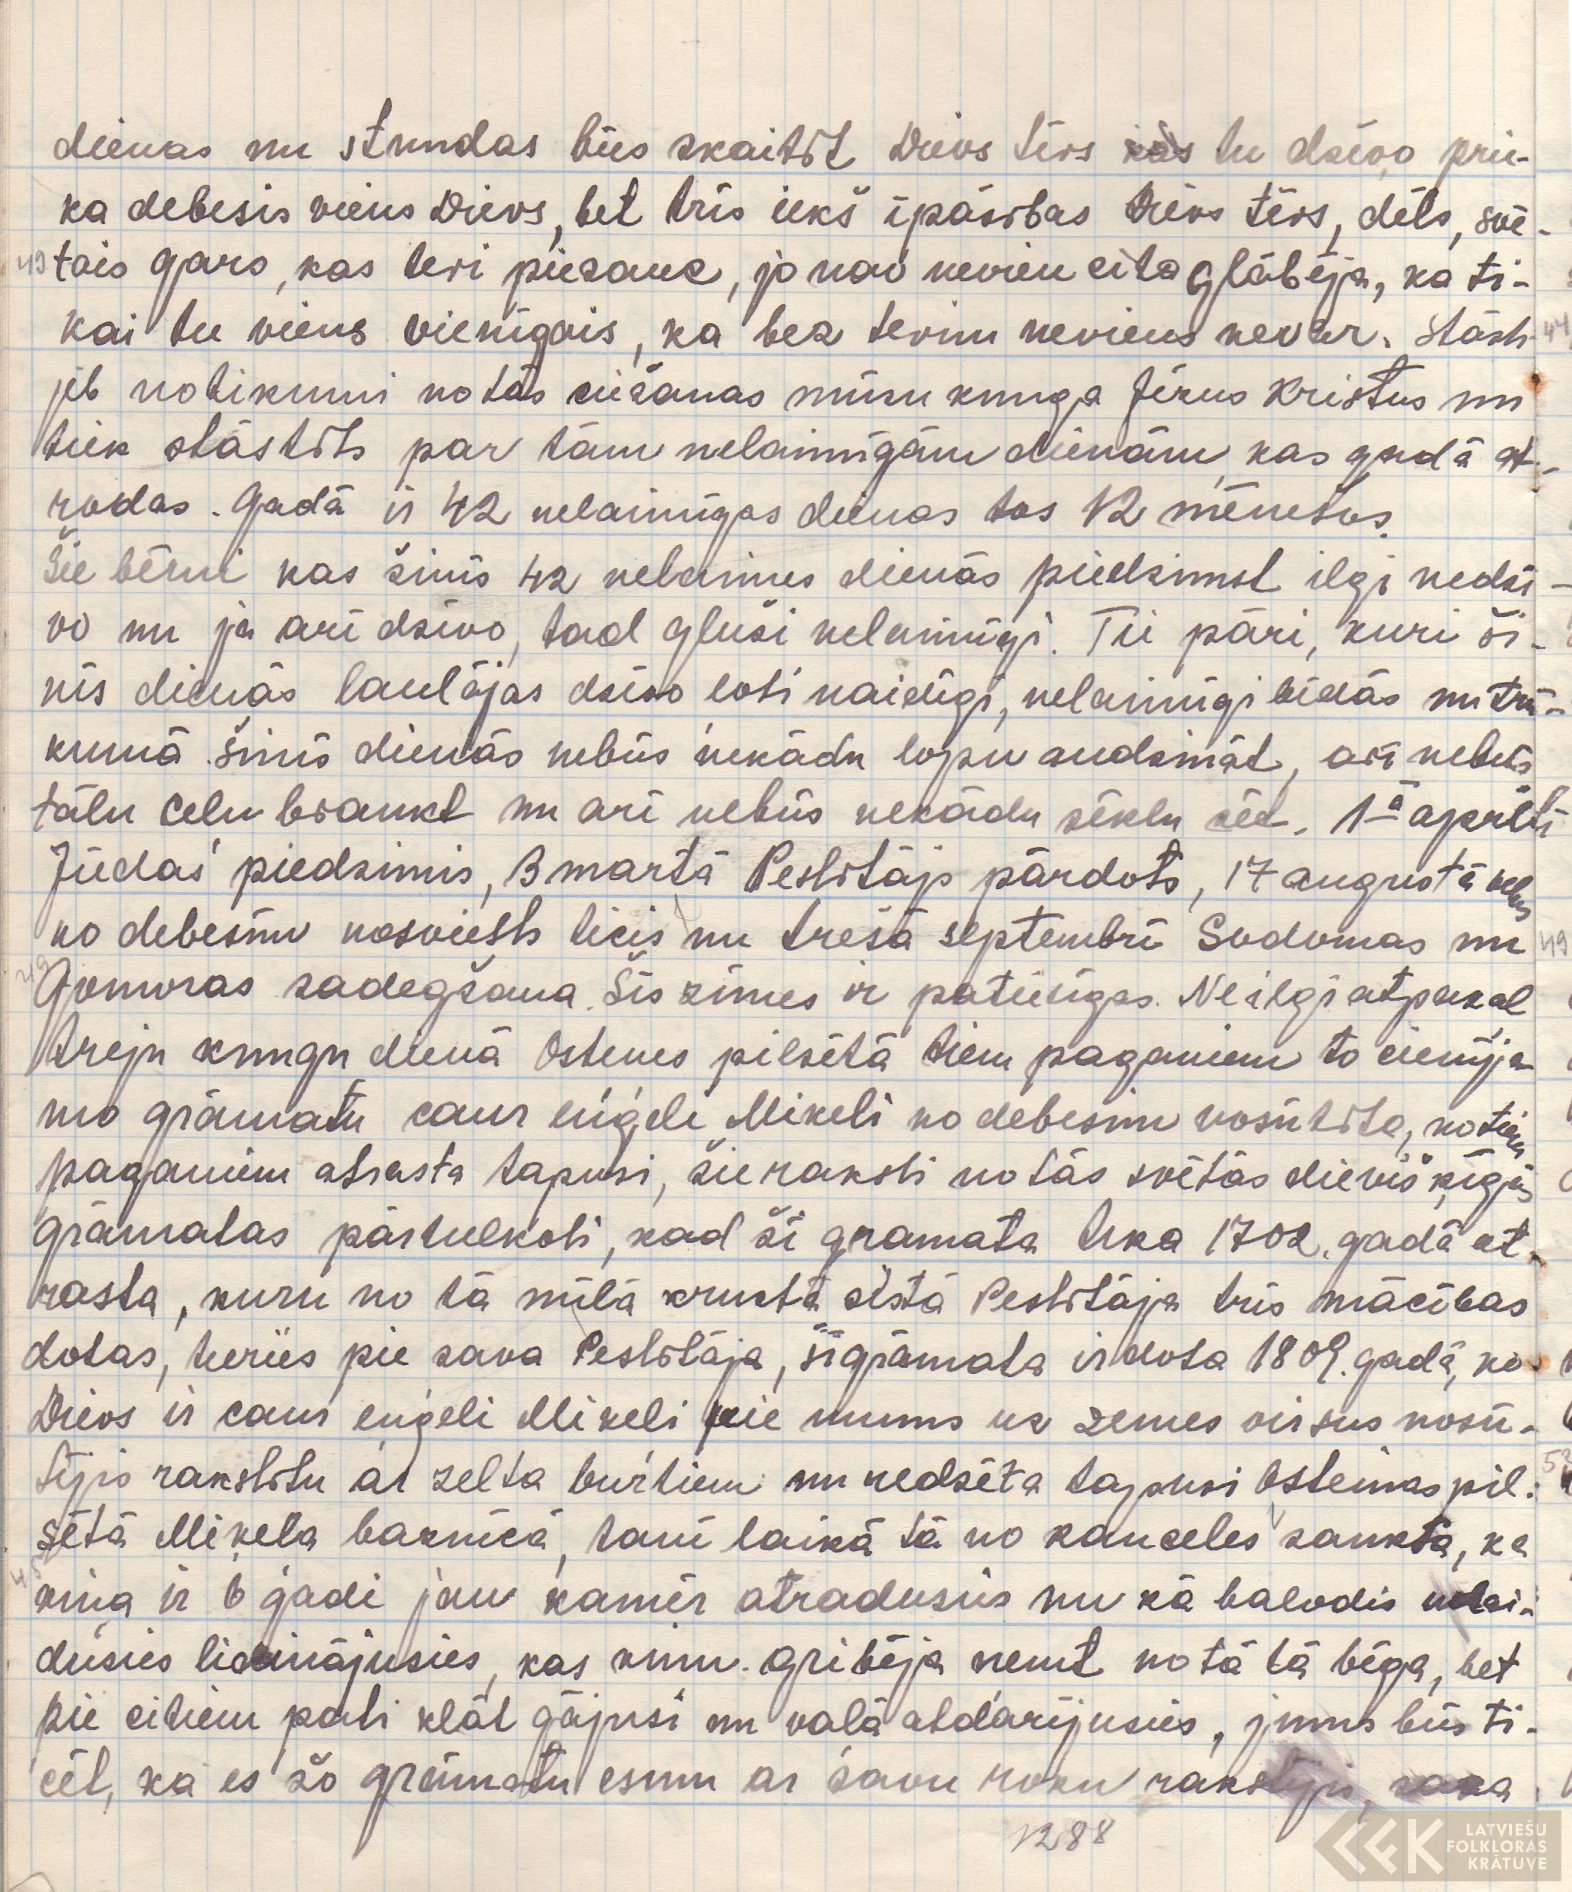 dienas un stundas būs skaitīt Dievs tēvs kas tu dzīvo prie-
ka debesis viens Dievs, bet trīs iekš īpāsības Dievs tēvs, dēls, svē-
tais gars, kas tevi piesauc, jo nav nevien cita glābēja, ka ti-
kai tu viens vienīgais, ka bez tevim neviens nevar. Stāsti
jeb notikumi no tās ciešanas mūsu kunga Jēzus Kristus un
tiek stāstīts par tām nelaimīgām dienām, kas gadā at-
rodas. Gadā ir 42 nelaimīgas dienas tos 12 mēnešus.
Šie bērni kas šinīs 42 nelaimes dienās piedzimst ilgi nedzī-
vo un ja arī dzīvo, tad gluži nelaimīgi. Tie pāri, kuri ši-
nīs dienās laulājas dzīvo loti naidīgi, nelaimīgi bēdās un trū-
kumā. Šinīs dienās nebūs nekādu lopu audzināt, arī nebūs
tālu celu braukt un arī nebūs nekādu sēklu sēt. 1ā aprīlī
Jūdas piedzimis, 3 martā Pestītājs pārdots, 17 augustā velns
no debesīm nosviests ticis un trešā septembrī Sodomas un
Gomoras sadegšana. Šīs zīmes ir patiesīgas. Ne ilgi atpakal
treju kungu dienā Ostenes pilsētā tiem paganiem to cienīja
mo grāmatu caur eņģeli Mikeli no debesīm nosūtīta, no tiem
paganiem atrasta tapusi, šie raksti no tās svētās dievišķīgās
grāmatas pārtulkoti, kad šī gramata tika 1702. gadā at-
rasta, kuru no tā mīlā krustā sistā Pestītāja trīs mācības
dotas, turies pie sava Pestītāja, šī grāmata ir dota 1809. gadā, ko
Dievs ir caur eņģeli Mikeli pie mums uz zemes virsus nosū-
tījis rakstītu ar zelta burtiem un redzēta tapusi Osteinas pil-
sētā Mikela baznīcā, tanī laikā tā no kanceles saukta, ka
viņa ir 6 gadi jau kamēr atradusies un kā balodis nolai-
dusies lidinājusies, kas viņu gribēja nemt no tā tā bēga, bet
pie citiem pati klāt gājusi un valā atdarījusies, jums būs ti-
cēt, ka es šo grāmatu esmu ar savu roku rakstījis, saka
1288
LATVIEŠU
FOLKLORAS
KRĀTUVE